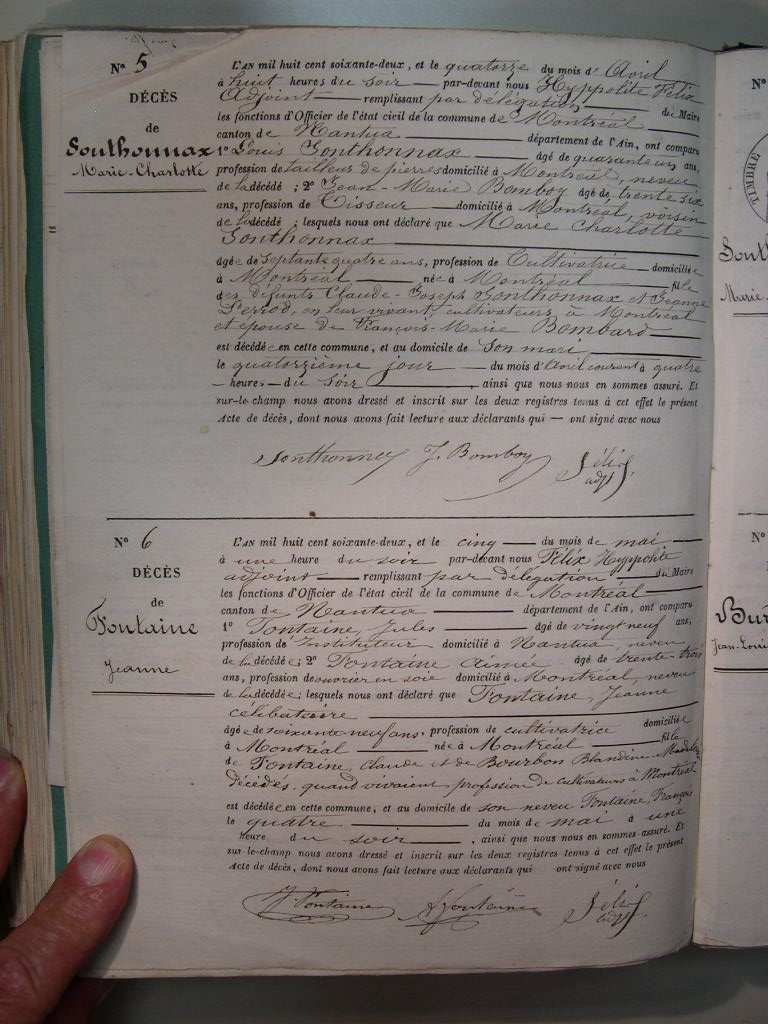 N° 5
DÉCÈS
de
Sonthonnax
Marie-Charlotte
L'AN mil huit cent soixante-deux, et le quatorze du mois d'Avril
à huit heures du soir par-devant nous Hyppolite Félix
Adjoint remplissant par délégation du Maire
les fonctions d'Officier de l'état civil de la commune de Montréal
canton de Nantua département de l'Ain, ont comparu
1° Louis Sonthonnax âgé de quarante un ans,
profession de tailleur de pierres domicilié à Montréal, neveu
de la décédé ; 2° Jean-Marie Bomboy âgé de trente six
ans, profession de Tisseur domicilié à Montréal, voisin
de la décédé ; lesquels nous ont déclaré que Marie Charlotte
Sonthonnax
âgée de Septante quatre ans, profession de Cultivatrice domiciliée
à Montréal née à Montréal fille
des défunts Claude-Joseph Sonthonnax et Jeanne
Perrod, en leur vivant cultivateurs à Montréal
et épouse de François-Marie Bombard
est décédée en cette commune, et au domicile de Son mari
le quatorzième jour du mois d'avril courant à quatre
heures du soir , ainsi que nous nous en sommes assuré. Et
sur-le-champ nous avons dressé et inscrit sur les deux registres tenus à cet effet le présent
Acte de décès, dont nous avons fait lecture aux déclarants qui ont signé avec nous
Sonthonnax J. Bomboy Félix
adjt
N° 6
DÉCÈS
de
Fontaine
Jeanne
L'AN mil huit cent soixante-deux, et le cinq du mois de mai
à une heure du soir par-devant nous Félix Hyppolite
adjoint remplissant par délégation du Maire
les fonctions d'Officier de l'état civil de la commune de Montréal
canton de Nantua département de l'Ain, ont comparu
1° Fontaine, Jules âgé de vingt neuf ans,
profession d'Instituteur domicilié à Nantua, neveu
de la décédée ; 2° Fontaine Aimé âgé de trente-trois
ans, profession d'ouvrier en soie domicilié à Montréal, neveu
de la décédée ; lesquels nous ont déclaré que Fontaine, Jeanne
célibataire
âgée de soixante-neuf ans, profession de cultivatrice domiciliée
à Montréal née à Montréal fille
de Fontaine, Claude et de Bourbon Blandine
Décédés, quand vivaient profession de cultivateurs à Montréal
est décédée en cette commune, et au domicile de son neveu Fontaine François
le quatre du mois de mai à une
heure du soir , ainsi que nous nous en sommes assuré. Et
sur-le-champ nous avons dressé et inscrit sur les deux registres tenus à cet effet le présent
Acte de décès, dont nous avons fait lecture aux déclarants qui ont signé avec nous
J. Fontaine A. Fontaine Félix
adjt
N°
TIMBRE
Marie-
N°
Jean-Louis